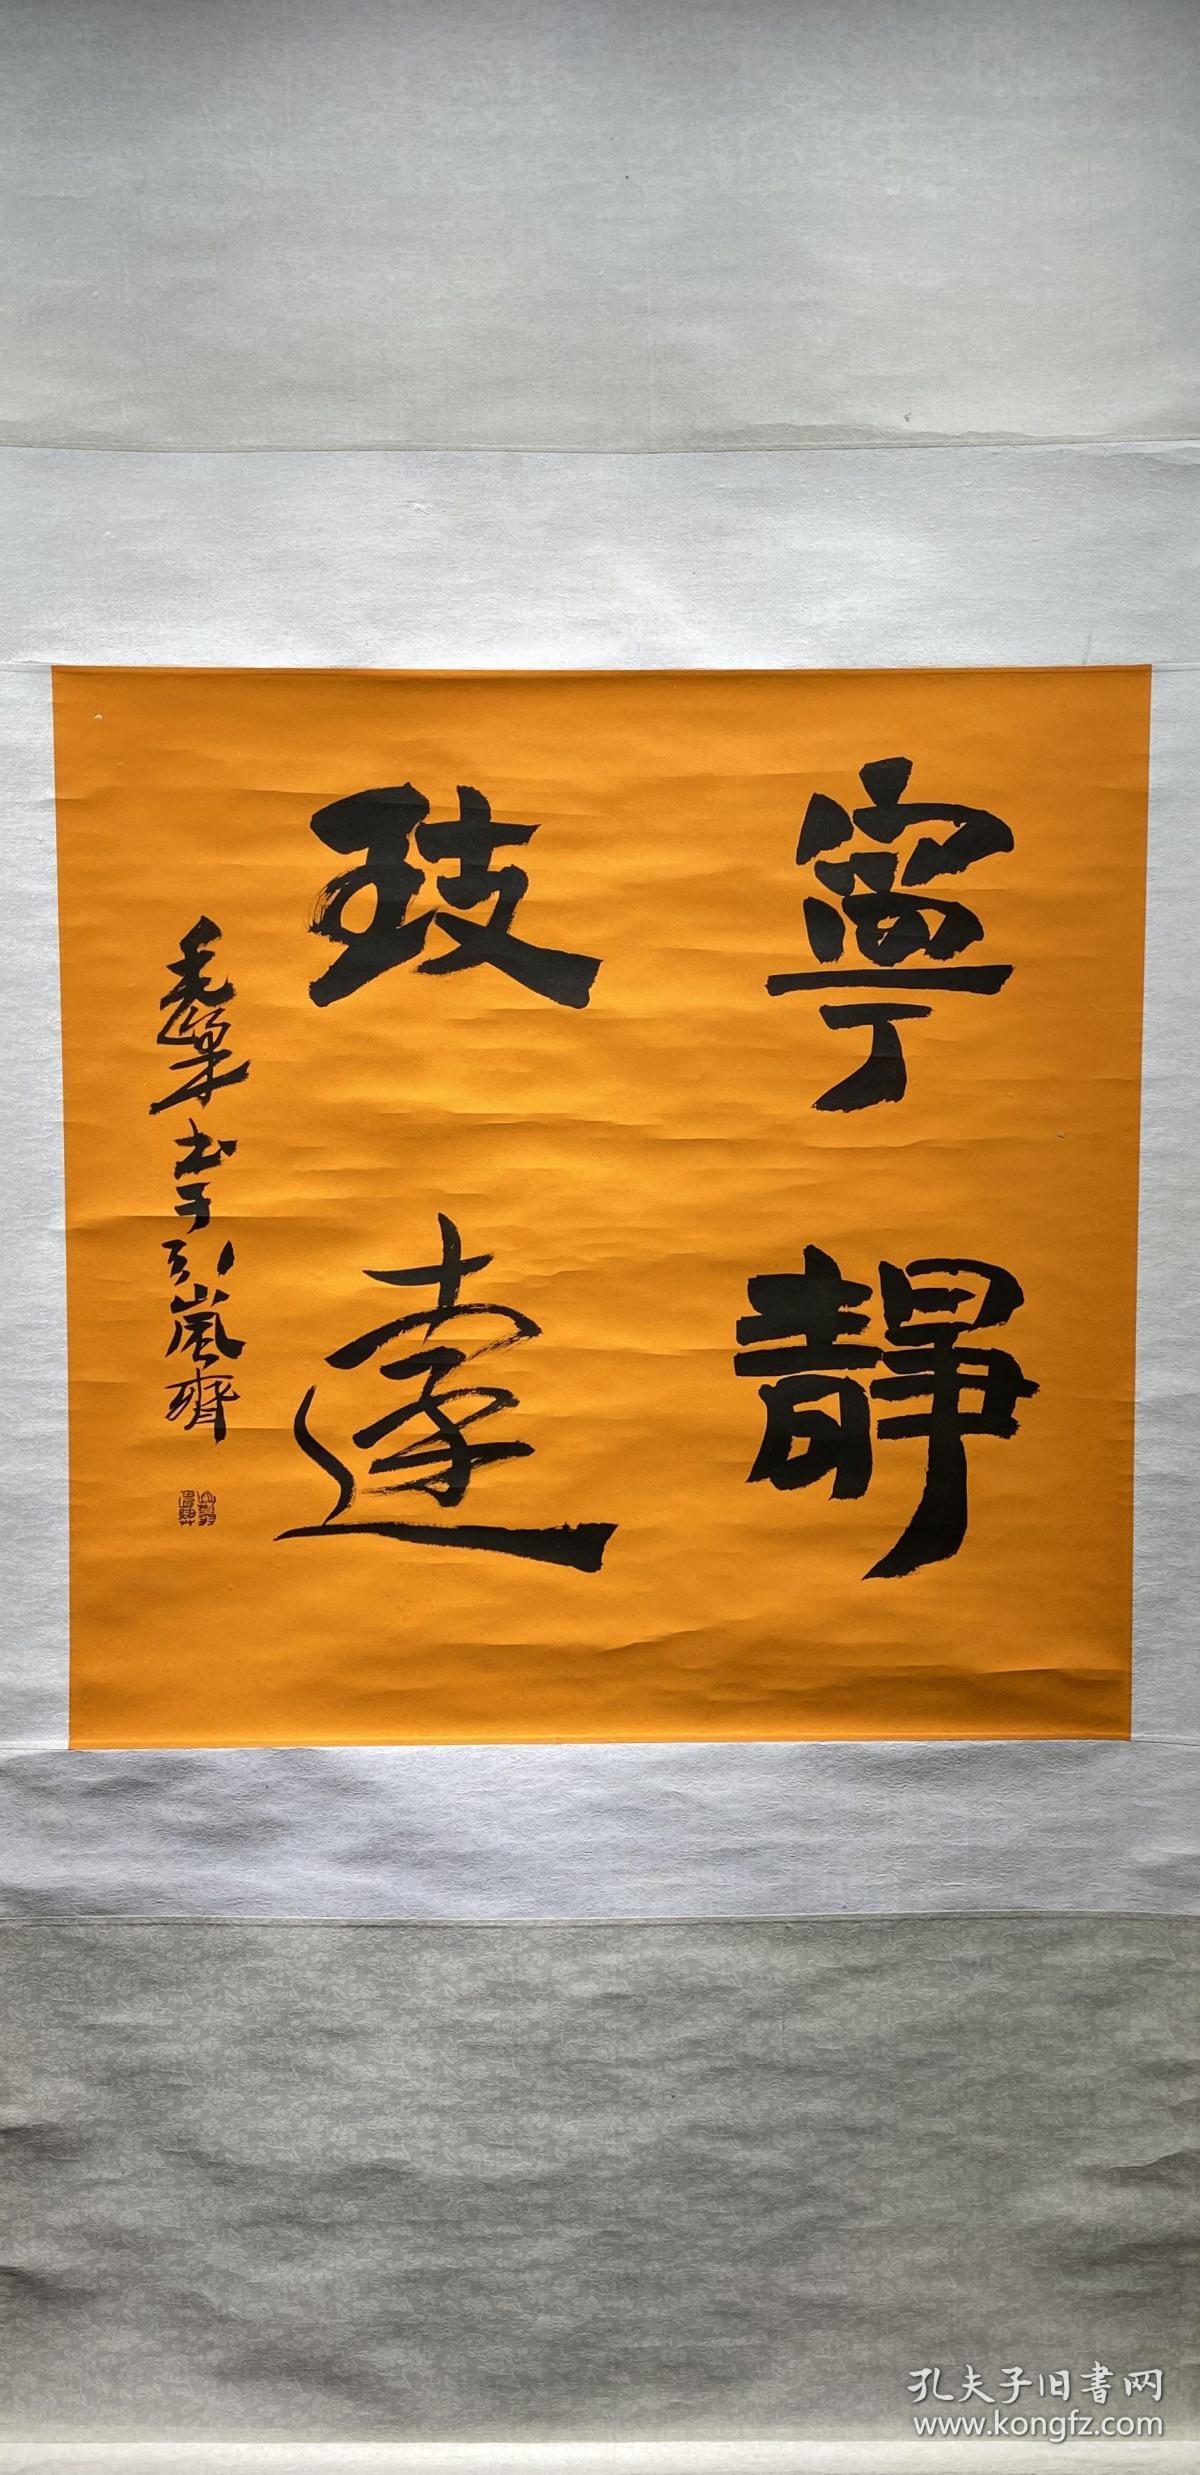 寧靜
致遠
書于引嵐齋
孔夫子旧書网
www.kongfz.com